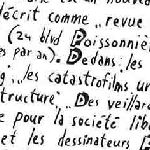 décrit comme "revue
(24 blvd Poissonniè
es par an). Dedans: les
les catastrofilms ur
tructure", Des veillar
e pour la société lib
et les dessinateurs